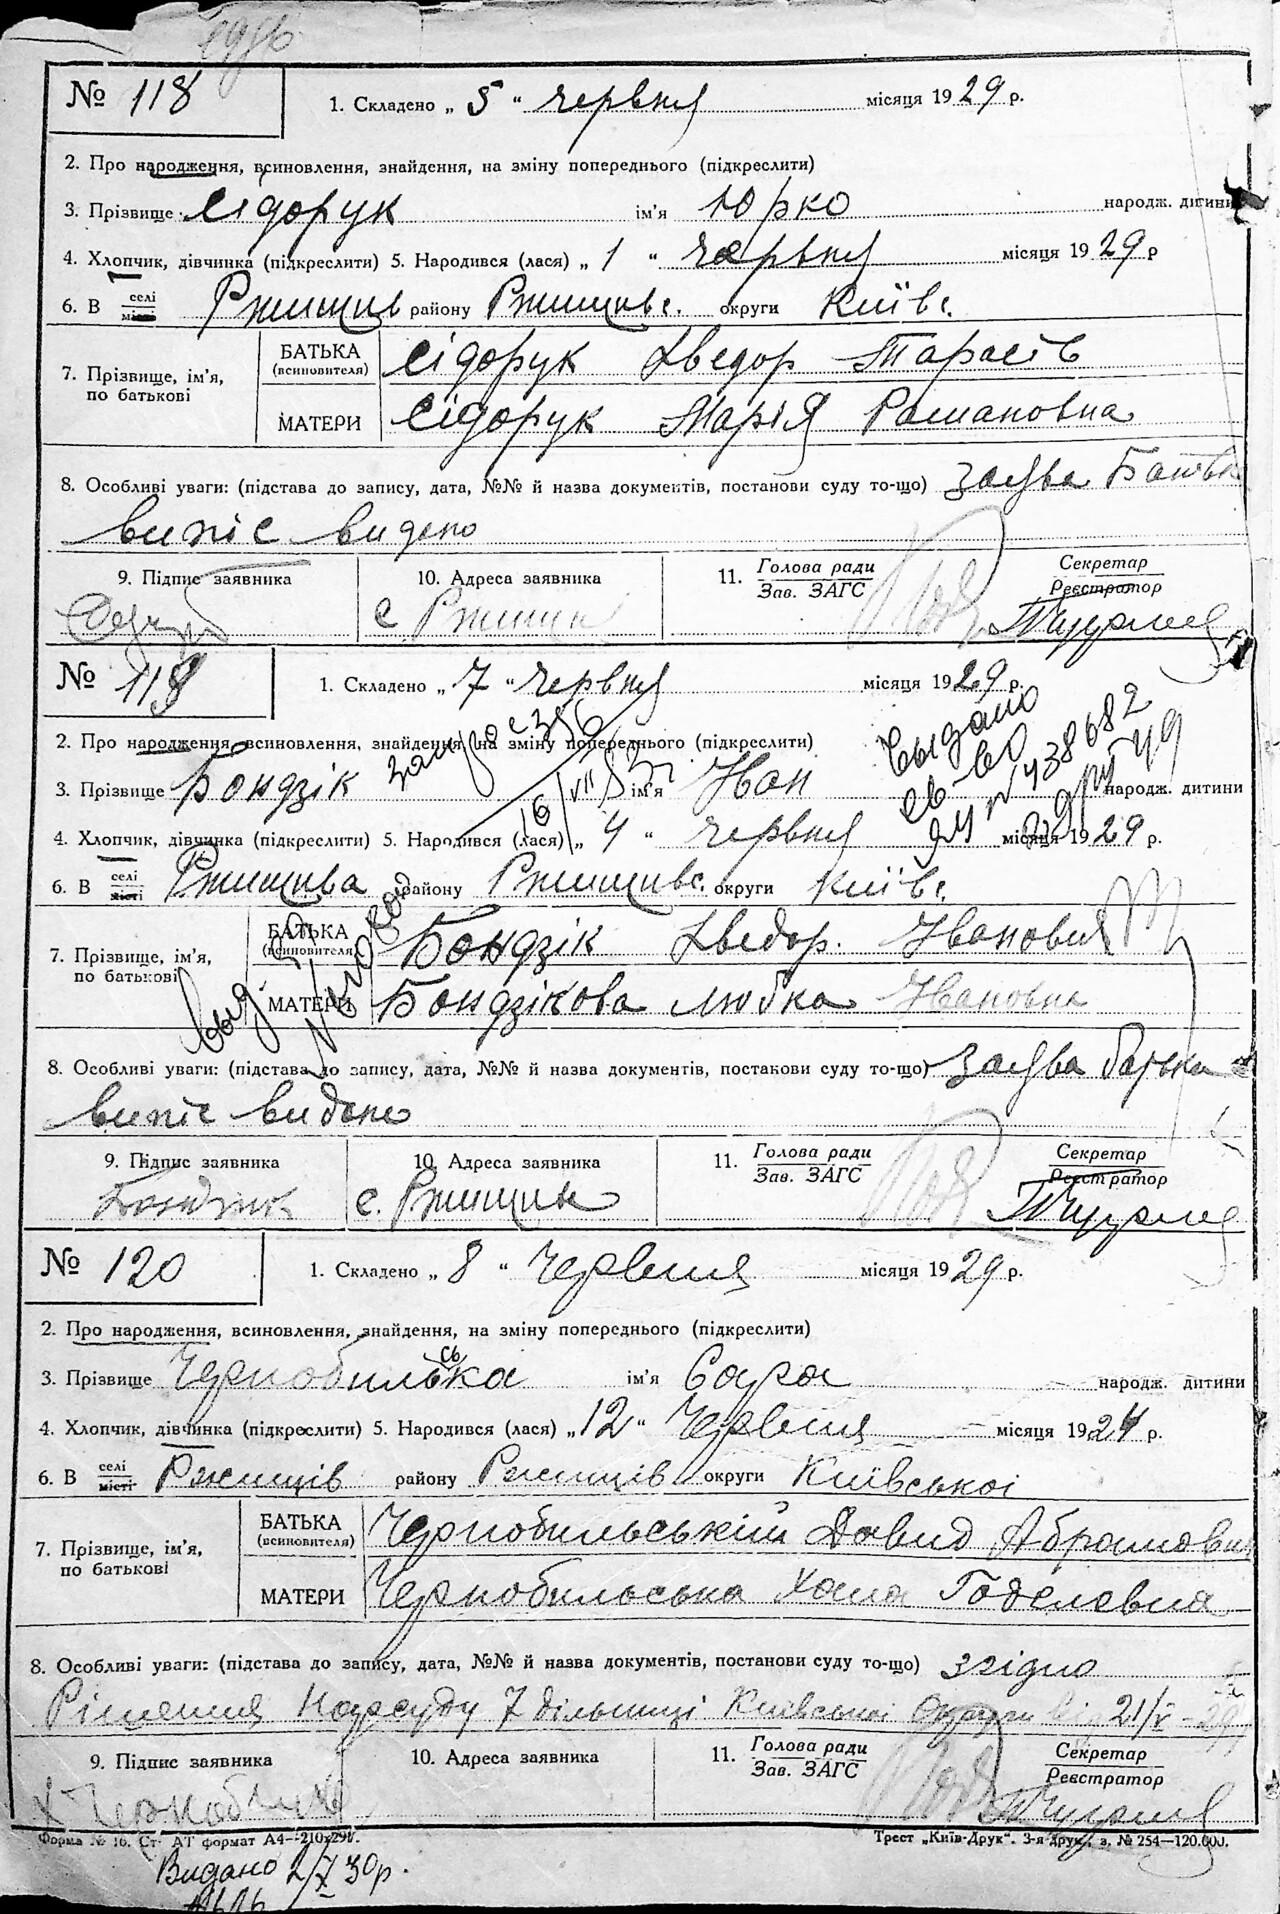 № 118
1. Складено „ 5 “ червня місяця 1929 р.
2. Про народження, всиновлення, знайдення, на зміну попереднього (підкреслити)
3. Прізвище Сідорук ім'я Юрко народж. дитини
4. Хлопчик, дівчинка (підкреслити) 5. Народився (лася) „ 1 “ Червня місяця 1929 р
6. В селі місті Ржищів району Ржищівс. округи Київс.
7. Прізвище, ім'я, по батькові
БАТЬКА (всиновителя) Сідорук Хведор Тарасів
МАТЕРИ Сідорук Марія Романовна
8. Особливі уваги: (підстава до запису, дата, №№ й назва документів, постанови суду то-що) заява Батька
випіс видано
9. Підпис заявника
10. Адреса заявника
с Ржищів
11. Голова ради
Зав. ЗАГС
Секретар
Реєстратор
№ 119
1. Складено „ 7 “ червня місяця 1929 р.
2. Про народження, всиновлення, знайдення, на зміну попереднього (підкреслити)
3. Прізвище Бондзік ім'я Іван народж. дитини
4. Хлопчик, дівчинка (підкреслити) 5. Народився (лася) „ 4 “ червня місяця 1929 р.
6. В селі місті Ржищева району Ржищівс. округи Київс.
7. Прізвище, ім'я, по батькові
БАТЬКА (всиновителя) Бондзік Хведор. Іванович
МАТЕРИ Бондзікова Любка Івановна
Выдано
св-во
8. Особливі уваги: (підстава до запису, дата, №№ й назва документів, постанови суду то-що) заява батька
випіс видано
9. Підпис заявника
Бондзик
10. Адреса заявника
с. Ржищів
11. Голова ради
Зав. ЗАГС
Секретар
Реєстратор
№ 120
1. Складено „ 8 “ Червня місяця 1929 р.
2. Про народження, всиновлення, знайдення, на зміну попереднього (підкреслити)
3. Прізвище Чернобильська ім'я Сара народж. дитини
4. Хлопчик, дівчинка (підкреслити) 5. Народився (лася) „ 12 “ Червня місяця 1924 р.
6. В селі місті Ржищів району Ржищів округи Київської
7. Прізвище, ім'я, по батькові
БАТЬКА (всиновителя) Чернобильській Давид Абрамович
МАТЕРИ Чернобильська Хана Годелевна
8. Особливі уваги: (підстава до запису, дата, №№ й назва документів, постанови суду то-що) згідно
Рішення Нарсуду 7 дільниці Київської Округи від 21/V-29
9. Підпис заявника
10. Адреса заявника
11. Голова ради
Зав. ЗАГС
Секретар
Реєстратор
Форма № 16. Ст. АТ формат А4—210х297.
Трест „Київ-Друк“. 3-я друк., з. № 254—120.000.
Видано 2/X 30р.